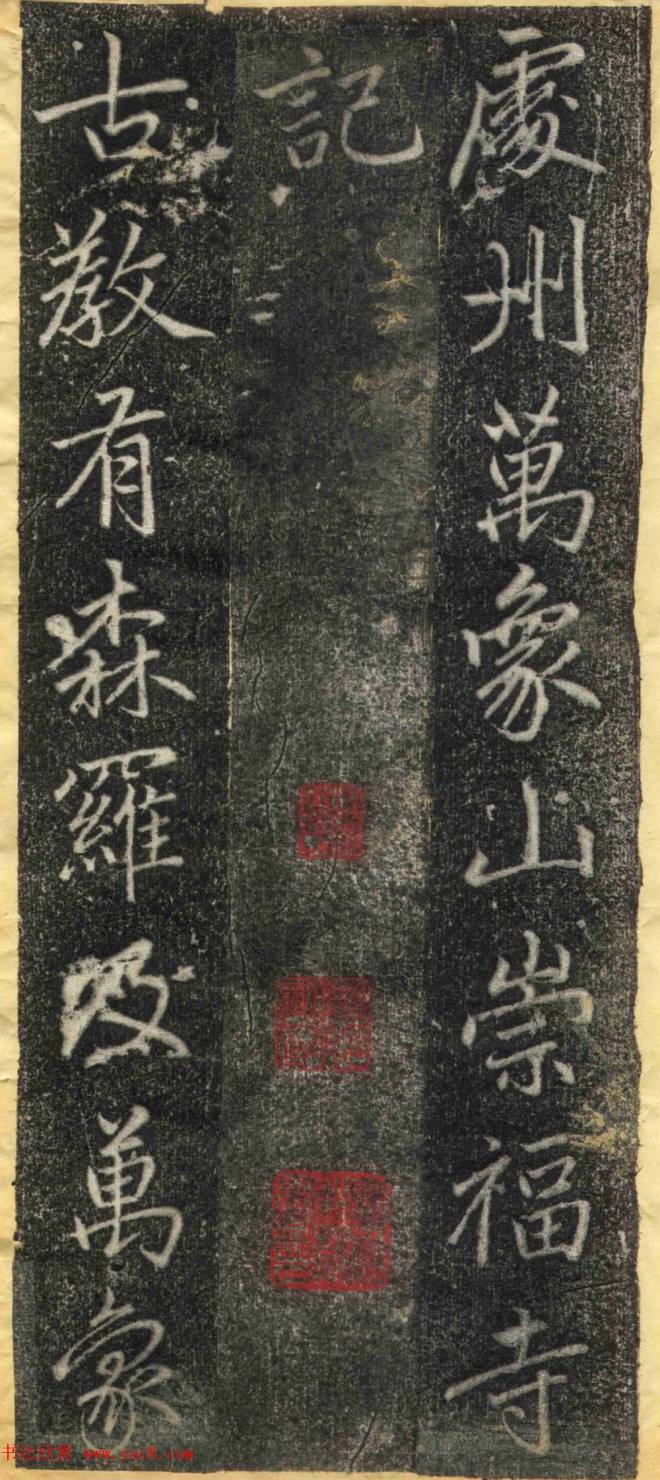 處州萬象山崇福寺
記
古教有森羅及萬象
www.yac8.com